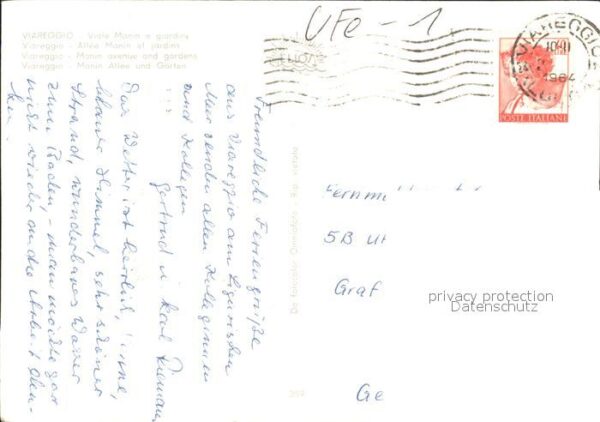 VIAREGGIO - Viale Manin e giardini
Viareggio - Allée Manin et jardins
Viareggio - Manin avenue and gardens
Viareggio - Manin Allee und Garten
UFe - 1
VIAREGGIO
1964
POSTE ITALIANE
Freundliche Feriengrüße
aus Viareggio am Ligurischen
Meer senden allen Kolleginnen
und Kollegen
Gertrud u. Karl
Das Wetter ist herrlich, Sonne,
blauer Himmel, sehr schöner
Strand, wunderbares Wasser
zum Baden, - man möchte gar
nicht wieder an die Arbeit den-
ken.
Da Fotocolor
Rip. vietata
5B
Graf
privacy protection
Datenschutz
Ge